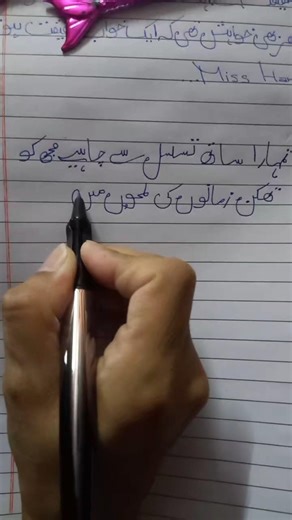 بھی خواہش تھی کہ ایک خواب
Miss Ha
تمہارا ساتھ تسلسل سے چاہیے مجھ کو
تھکن زمانوں کی لمحوں میں